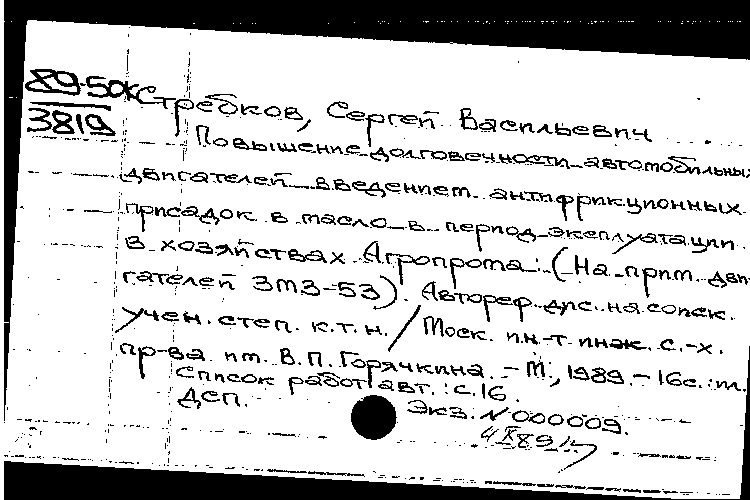 89-50к
3819
Стребков, Сергей Васильевич
Повышение долговечности автомобильных
двигателей введением антифрикционных
присадок в масло в период эксплуатации
в хозяйствах Агропрома: (На прим. дви-
гателей ЗМЗ-53). Автореф. дис. на соиск.
учен. степ. к.т.н. / Моск. ин-т инж. с.-х.
пр-ва им. В.П. Горячкина. - М., 1989. - 16с.: ил.
Список работ авт.: с.16.
ДСП.
Экз. № 000009.